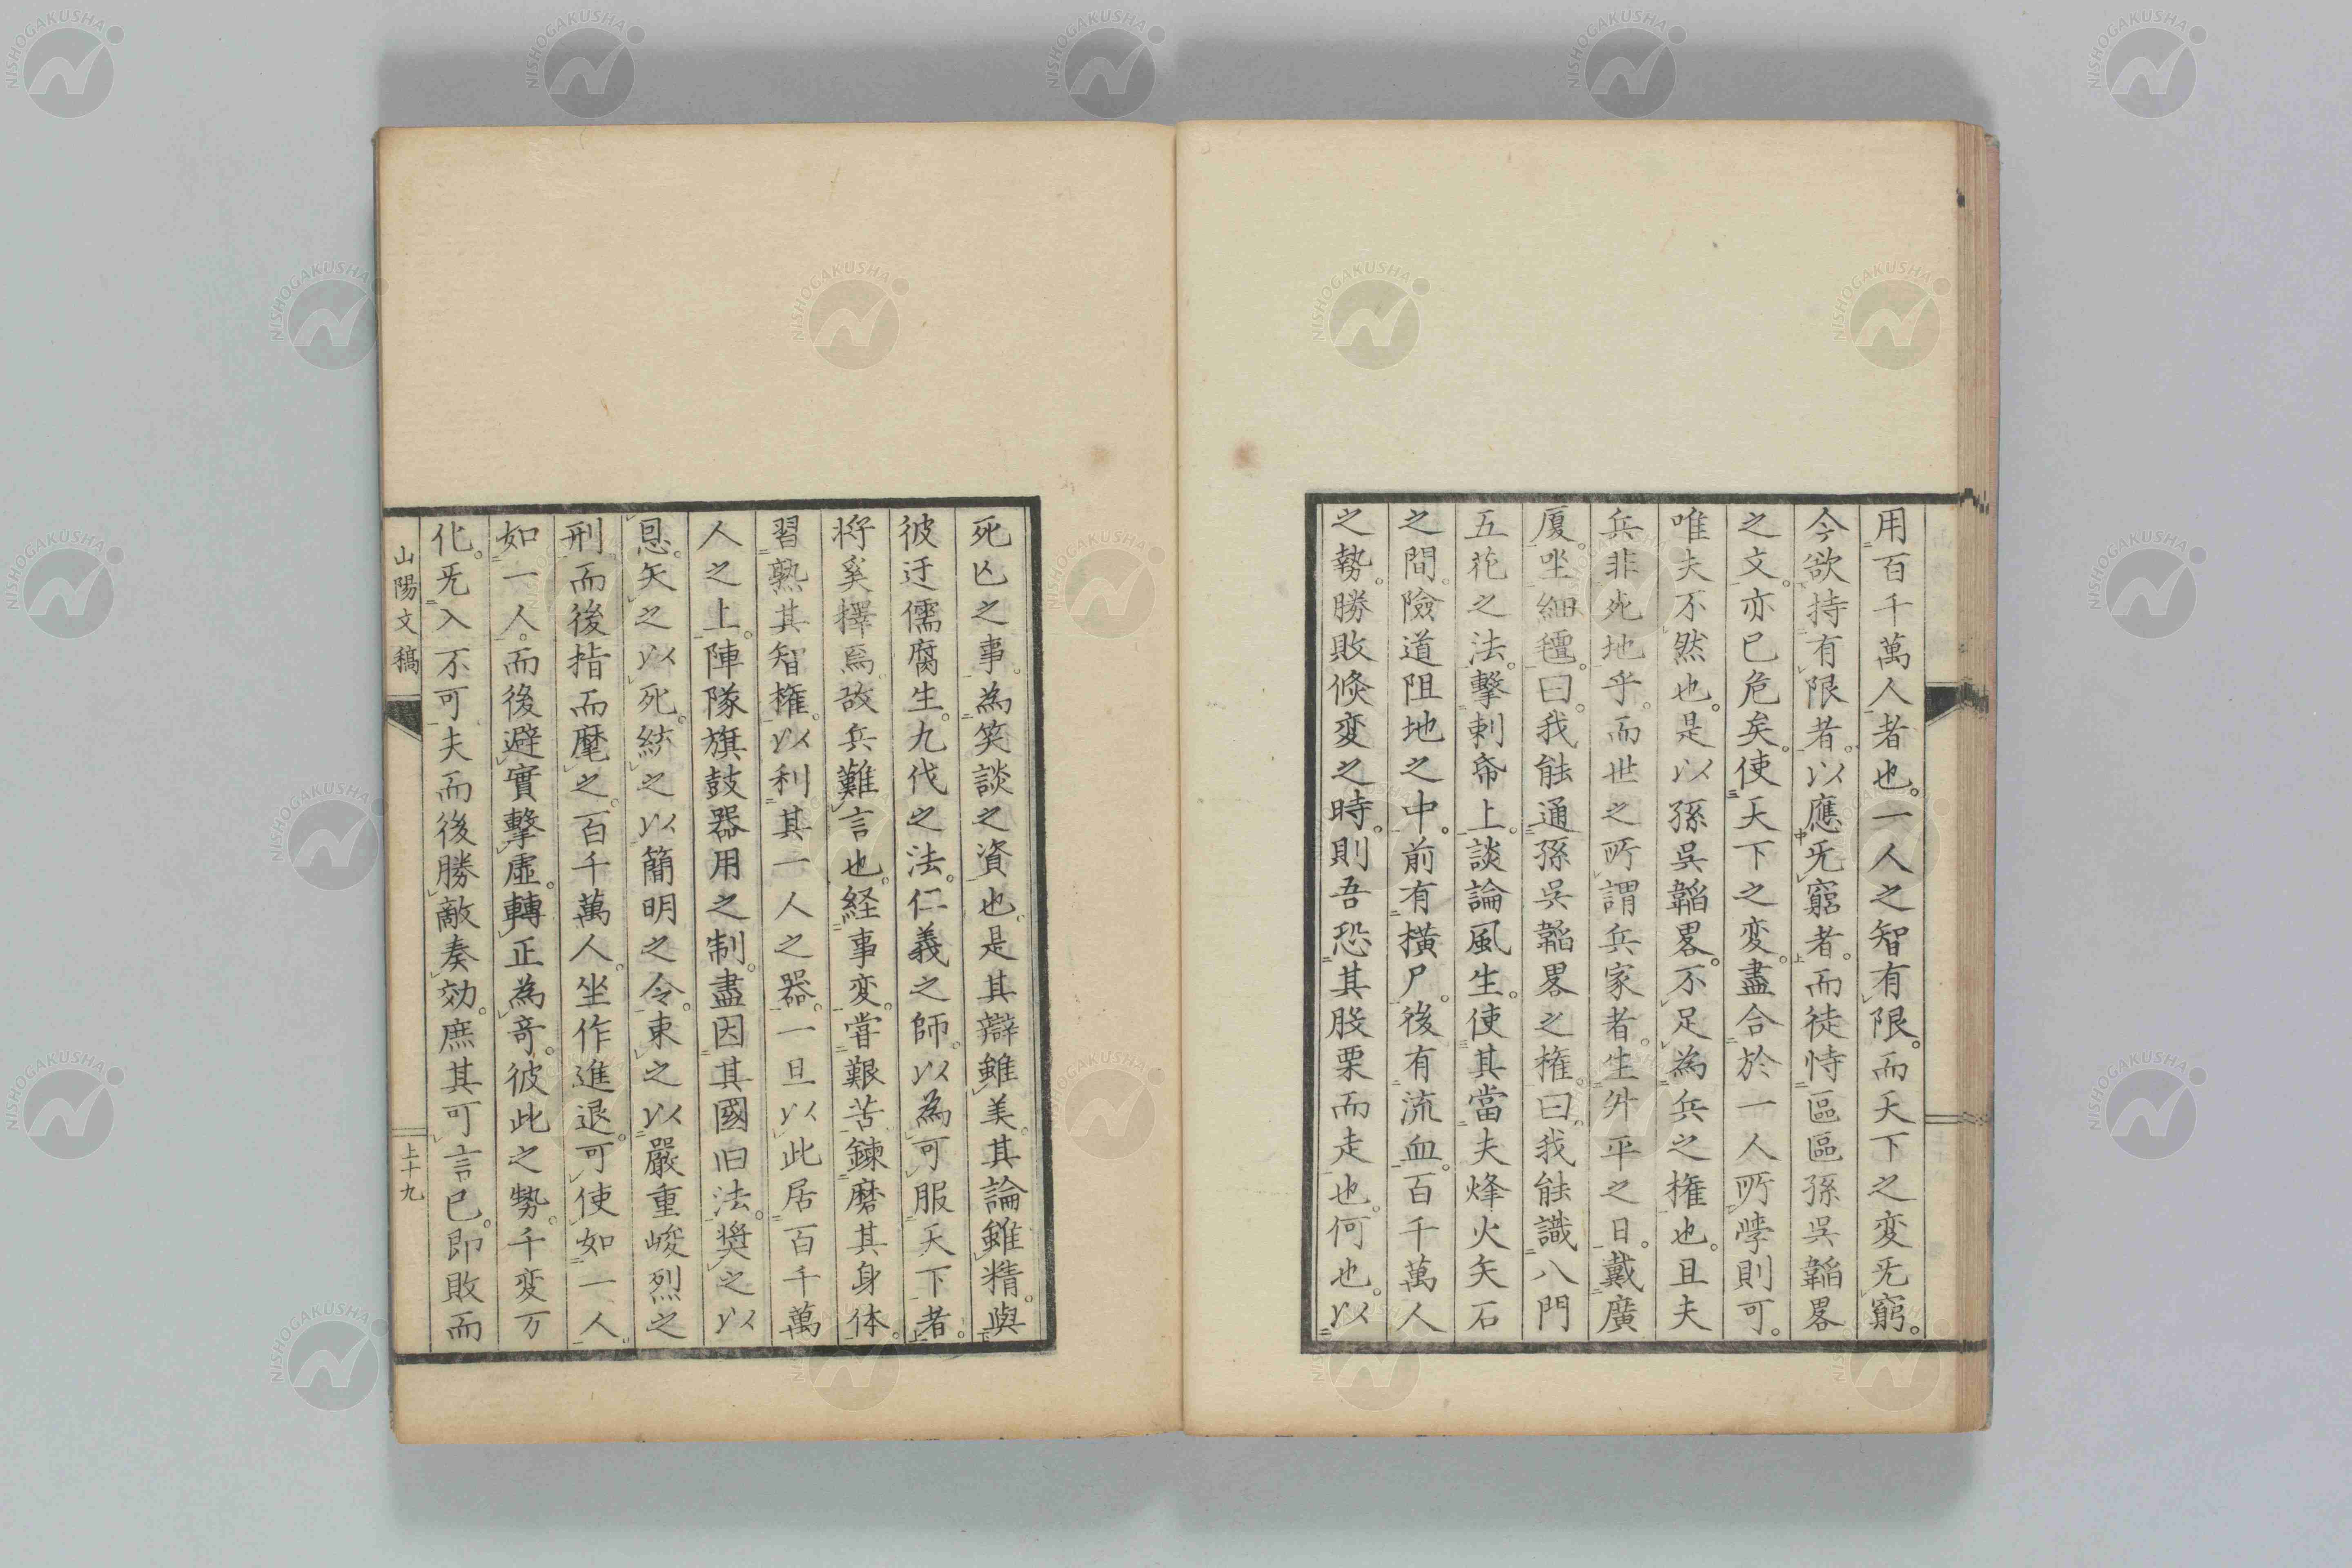 用百千萬人者也。一人之智有限。而天下之変旡窮。
今欲持有限者。以應旡窮者。而徒恃區區孫呉韜畧
之文。亦已危矣。使天下之変。盡合於一人所學則可。
唯夫不然也。是以孫呉韜畧。不足為兵之権也。且夫
兵非死地乎。而世之所謂兵家者。生舛平之日。戴廣
厦。坐細氊。曰。我能通孫呉韜畧之権。曰。我能識八門
五花之法。擊刺帝上。談論風生。使其當夫烽火矢石
之間。險道阻地之中。前有横尸。後有流血。百千萬人
之勢。勝敗倏変之時。則吾恐其股栗而走也。何也。以
死亡之事。為笑談之資也。是其辯雖美。其論雖精。與
彼迂儒腐生。九伐之法。仁義之師。以為可服天下者。
将奚擇焉。故兵難言也。経事変。甞艱苦。鍊磨其身体。
習熟其智権。以利其一人之器。一旦以此居百千萬
人之上。陣隊旗鼓器用之制。盡因其國旧法。奨之以
恩。矢之以死。結之以簡明之令。束之以嚴重峻烈之
刑。而後指而麾之。百千萬人。坐作進退。可使如一人。
如一人。而後避實擊虚。轉正為奇。彼此之勢。千変万
化。旡入不可。夫而後勝敵奏効。庶其可言已。即敗而
山陽文稿
上十九
NISHOGAKUSHA